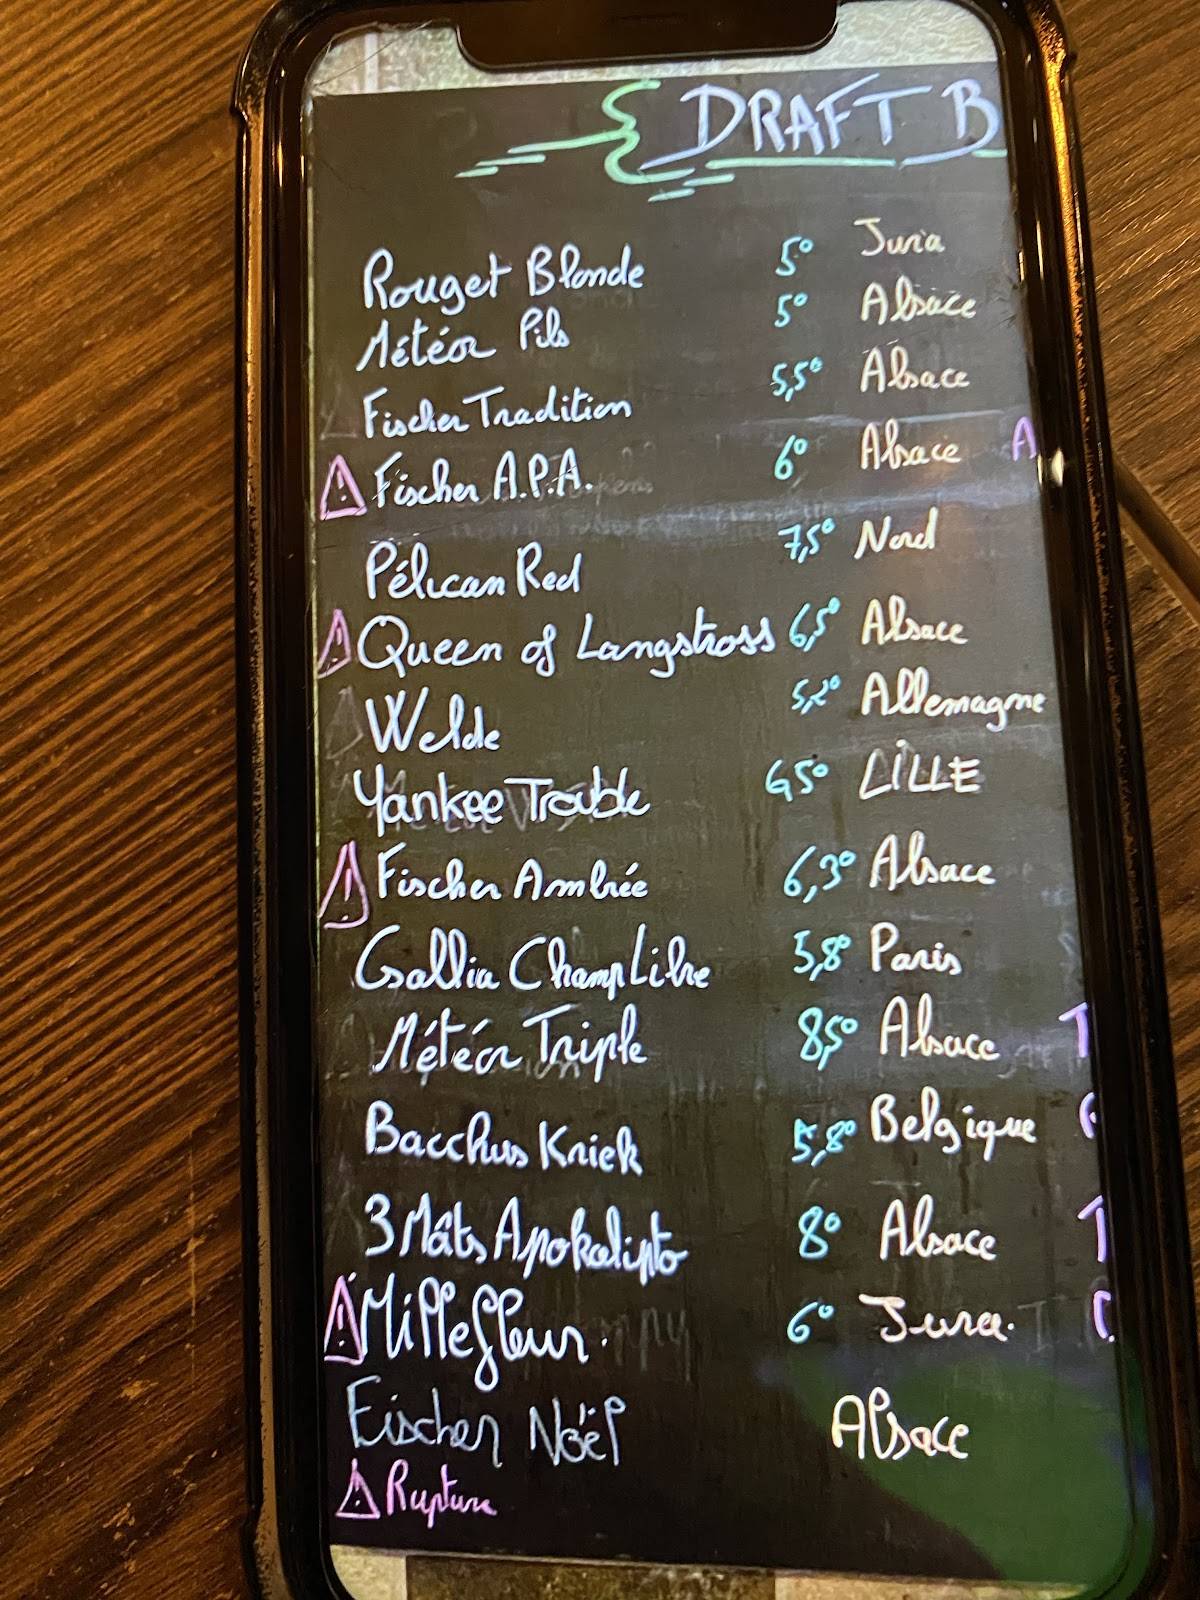 DRAFT B
Rouget Blonde 5° Jura
Météor Pils 5° Alsace
Fischer Tradition 5,5° Alsace
⚠ Fischer A.P.A. 6° Alsace A
Pélican Red 7,5° Nord
⚠ Queen of Langstross 6,5° Alsace
Welde 5,2° Allemagne
Yankee Trouble 6,5° LILLE
⚠ Fischer Ambrée 6,3° Alsace
Gallia Champ Libre 5,8° Paris
Météor Triple 8,5° Alsace T
Bacchus Kriek 5,8° Belgique
3 Mâts Apokalipto 8° Alsace T
⚠ Millefleur. 6° Jura.
Fischer Noël Alsace
⚠ Rupture